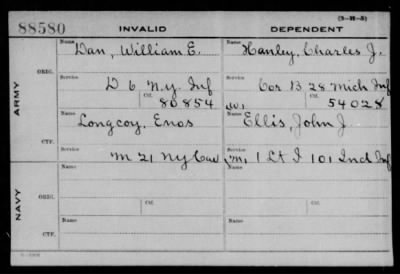 (3-H-5)
88580 INVALID DEPENDENT
Name Dan, William E. Name Hanley, Charles J.
ARMY
ORIG.
Service D 6 N.Y. Inf Service Cor B 28 Mich Inf
Ctf. 80854 Ctf. 54028
Name Longcoy, Enos Name Ellis, John J.
CTF.
Service M 21 NY Cav Service 1 Lt I 101 Ind Inf
NAVY
ORIG.
Name Ctf. Name Ctf.
CTF.
Name Name